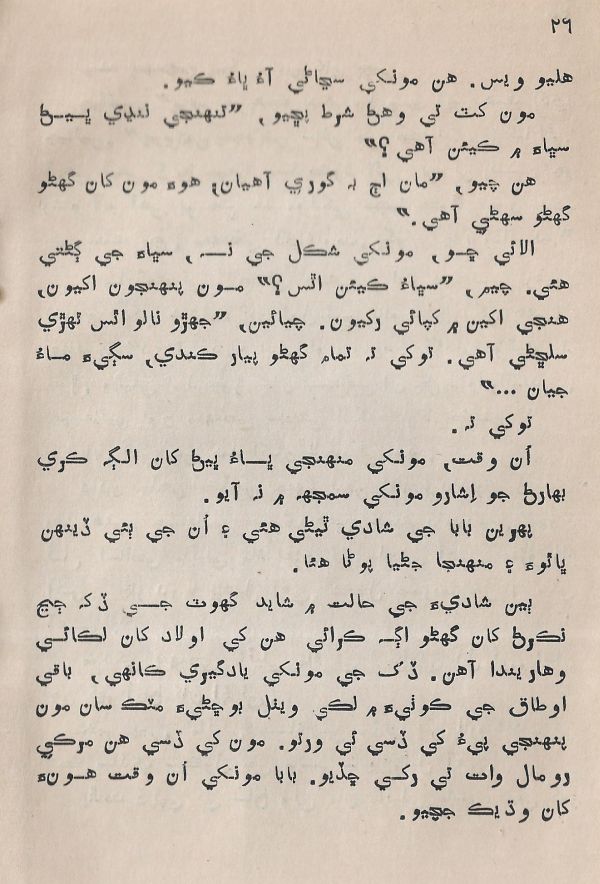 ٢٦
هليو ويس. هن مونکي سڃاڻي آءُ ڀاءُ ڪيو.
مون کٽ تي وهڻ شرط پڇيو، ”تنهنجي ننڍي ڀيـڻ
سڀاهه ۾ ڪيئن آهي؟“
هن چيو، ”مان اڃ به گوري آهيان; هوءَ مون کان گهڻو
گهڻو سهڻي آهي.“
الائي ڇـو، مونکي شڪل جي نـه، سڀاهه جي ڳڻتي
هئي. چيم، ”سڀاءُ ڪيئن اٿس؟“ مـون پنهنجون اکيون،
هنجي اکين ۾ کپائي رکيون. چيائين، ”جهڙو نالو اٿس تهڙي
سلڇڻي آهي. توکي ته تمام گهڻو پيار ڪندي، سڳيءَ مـاءُ
جيان ...“
توکي ته.
اُن وقت، مونکي منهنجي پـاءُ ڀيڻ کان الڳ ڪري
بهارڻ جو اِشارو مونکي سمجهه ۾ نه آيو.
پهرين بابا جي شادي ٿيڻي هئي ۽ اُن جي ٻئي ڏينهن
ڀائوءَ ۽ منهنجا جڻيا پوڻا هئا.
ٻين شاديءَ جي حالت ۾ شايد گهوٽ جـي ڏکه ڃڃ
نڪرڻ کان گهڻو اڳـه ڪرائي هن کي اولاد کان لڪائـي
وهاريندا آهن. ڏک جي مونکي يادگيري ڪانهي، باقي
اوطاق جي ڪوٺيءَ ۾ لڪي ويٺل بوڇڻيءَ مٿڪ سان مون
پنهنجي پيءُ کي ڏسي ئي ورتو. مون کي ڏسي هن مرڪي
رومال وات تي رکي ڇڏيو. بابا مونکي اُن وقت هـونءَ
کان وڌيڪ جچيو.